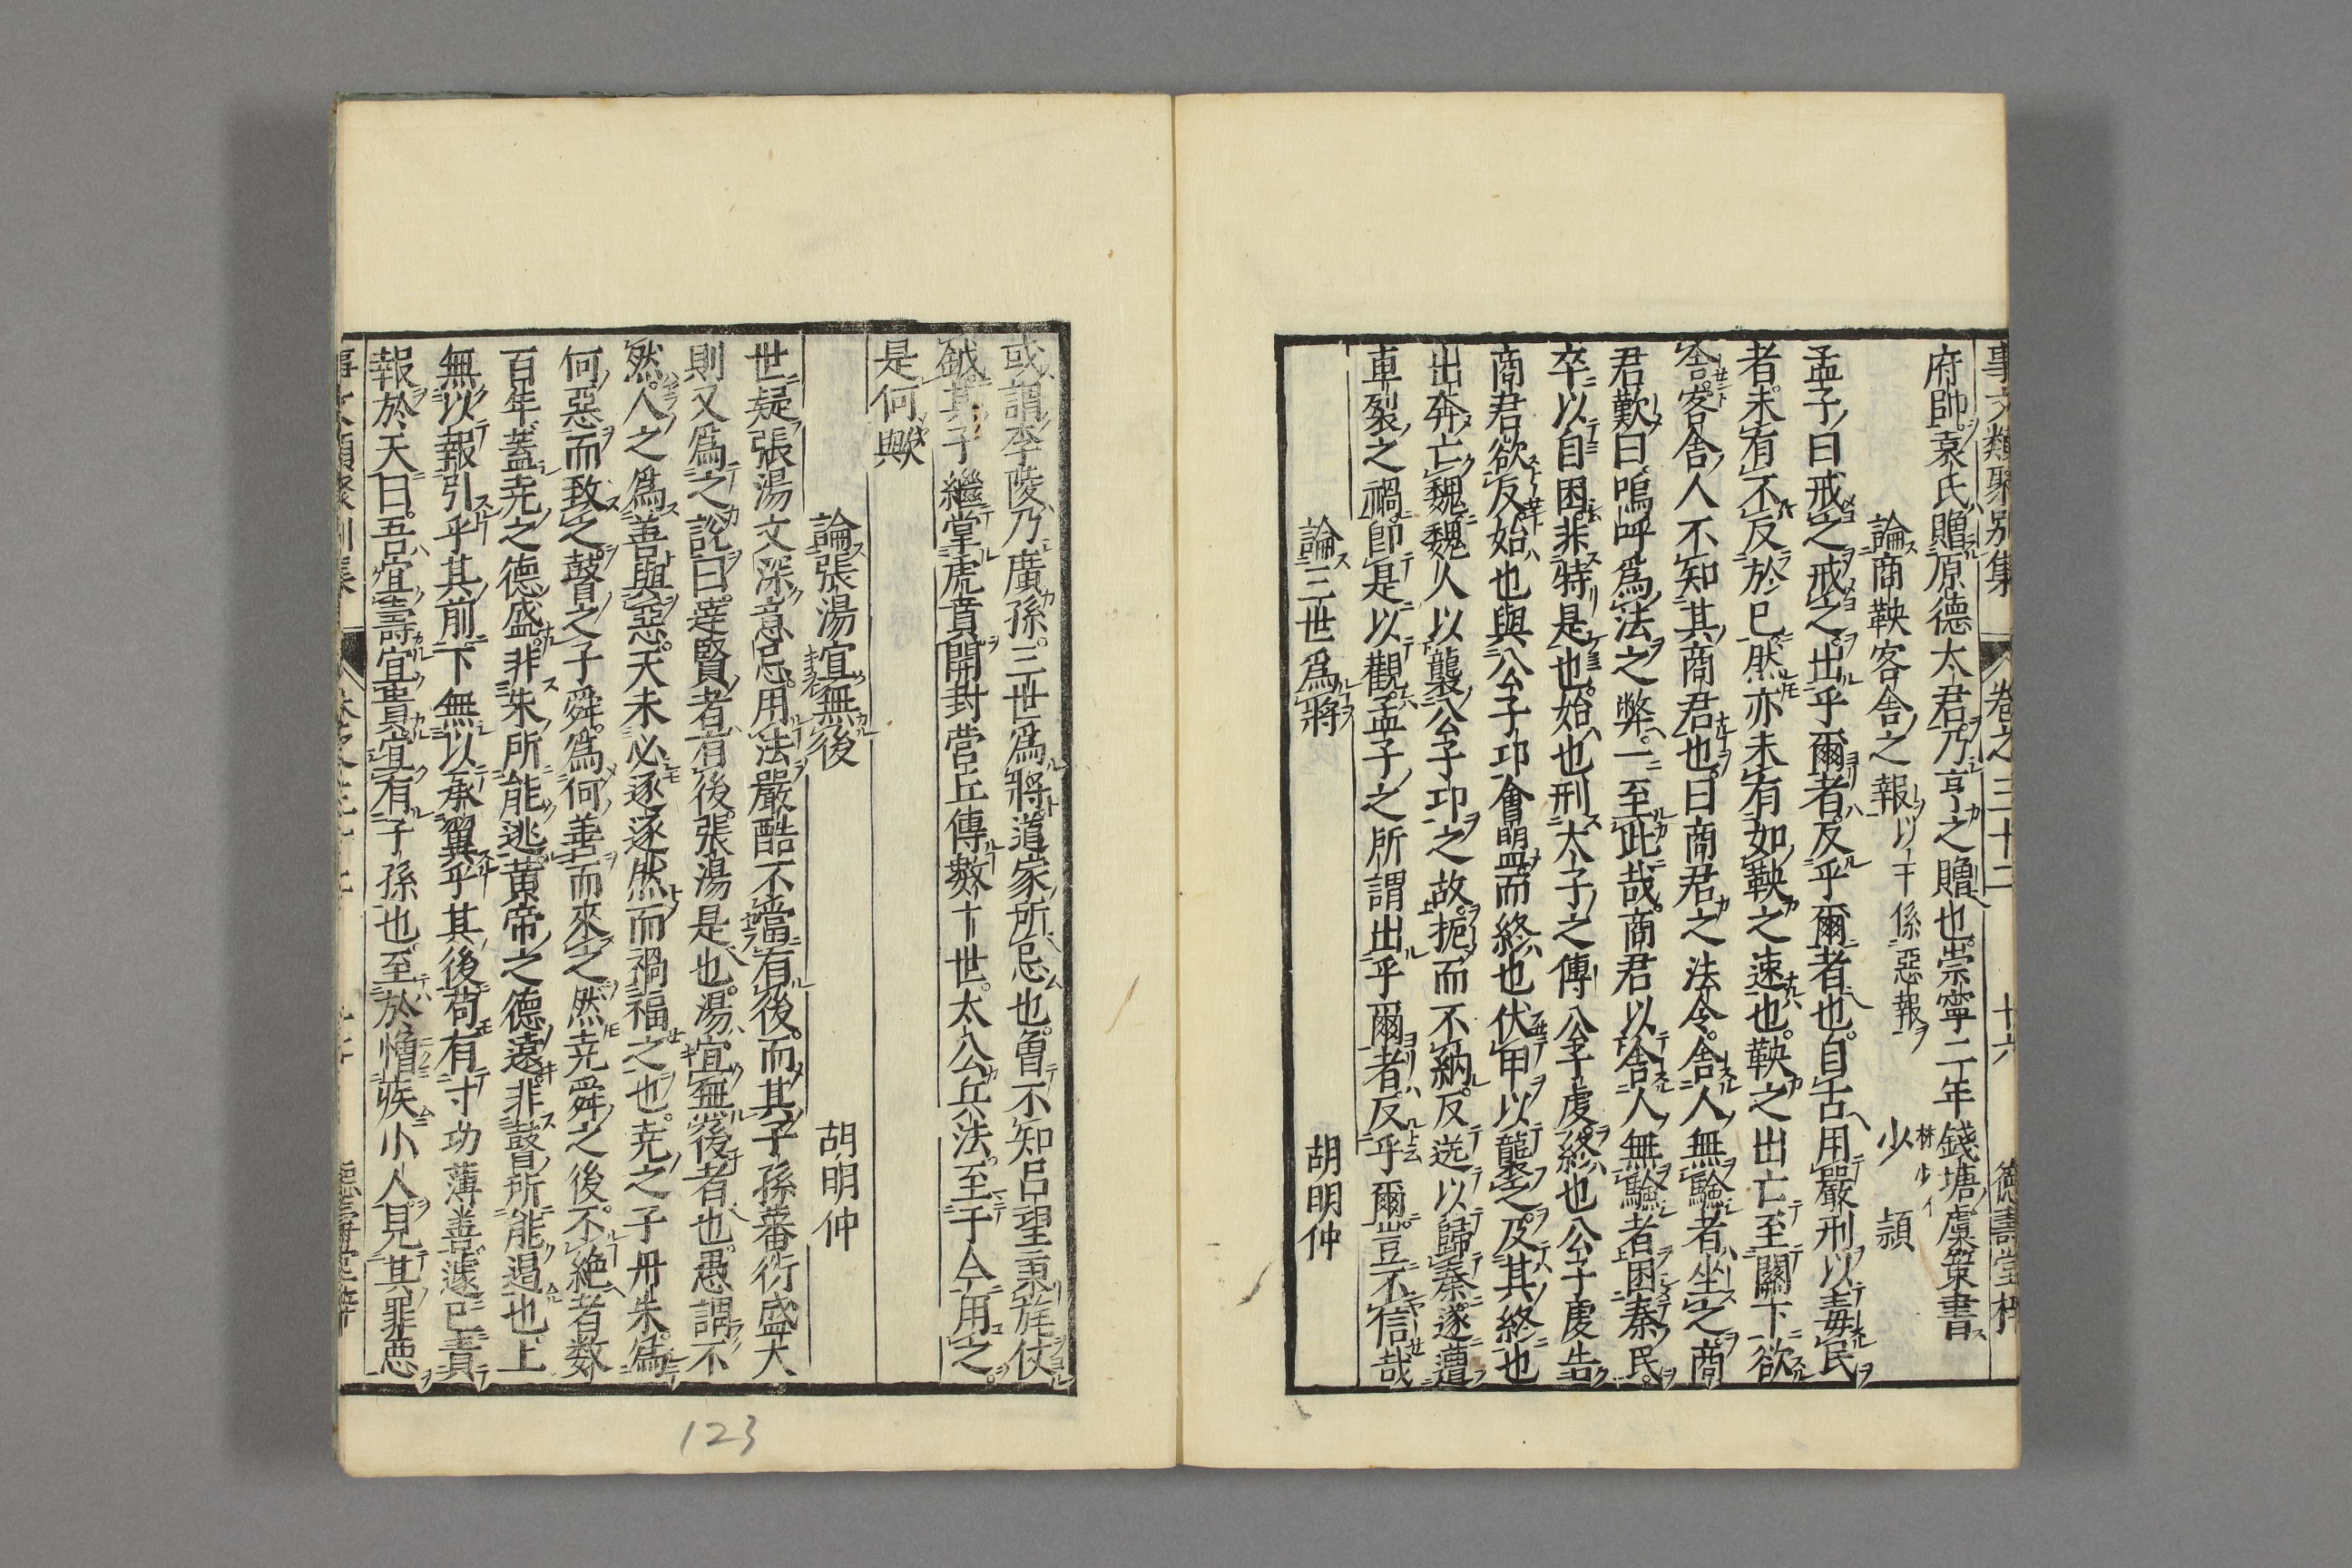 事文類聚別集 卷之三十二 十六 德壽堂梓
府帥袁氏贈原德太君乃亨之贈也崇寧二年錢塘虞策書
論商鞅客舍之報 以下係惡報 林少穎
孟子曰戒之戒之出乎爾者反乎爾者也自古用嚴刑以毒民
者未有不反於已然亦未有如鞅之速也鞅之出亡至關下欲
舍客舍人不知其商君也曰商君之法令舍人無驗者坐之商
君歎曰嗚呼爲法之弊一至此哉商君以舍人無驗者困秦民
卒以自困非特是也始也刑太子之傅公子虔終也公子虔告
商君欲反始也與公子卬會盟而終也伏甲以襲之及其終也
出奔亡魏魏人以襲公子卬之故扼而不納反送以歸秦遂遭
車裂之禍卽是以觀孟子之所謂出乎爾者反乎爾豈不信哉
論三世爲將 胡明仲
或謂李陵乃廣孫三世爲將道家所忌也曾不知呂望秉旄仗
鉞其子繼掌虎賁開封營丘傳數十世太公兵法至于今用之
是何歟
論張湯宜無後 胡明仲
世疑張湯文深意忌用法嚴酷不當有後而其子孫蕃衍盛大
則又爲之說曰達賢者有後張湯是也湯宜無後者也愚謂不
然人之爲善與惡天未必逐逐然而禍福之也尭之子丹朱爲
何惡而致之瞽之子舜爲何善而來之然尭舜之後不絶者数
百年蓋尭之德盛非朱所能逃黄帝之德遠非瞽所能遏也上
無以報引乎其前下無以承翼乎其後苟有寸功薄善遽已責
報於天曰吾宜壽宜貴宜有子孫也至於憎疾小人見其罪惡